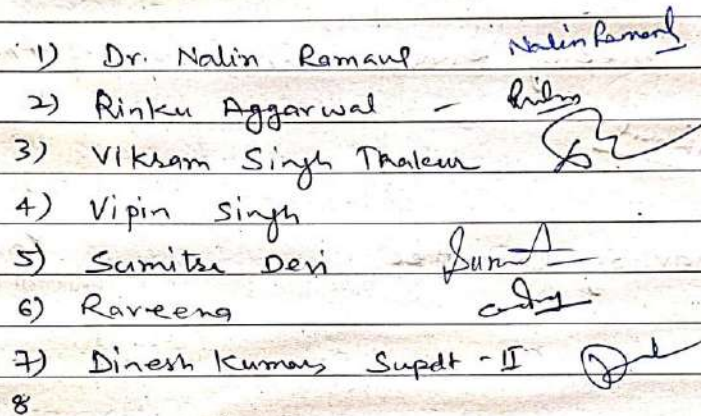 1) Dr. Nalin Ramaul Nalin Ramaul
2) Rinku Aggarwal - Rinku
3) Vikram Singh Thakur
4) Vipin Singh
5) Sumitra Devi
6) Raveena
7) Dinesh Kumar, Supdt - II
8